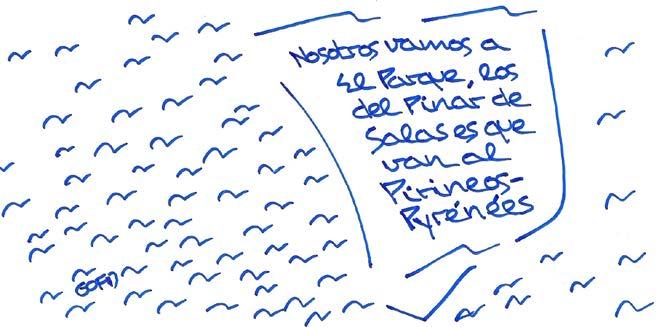 Nosotros vamos a
El Parque, los
del Pinar de
Salas es que
van al
Pirineos-
Pyrénées